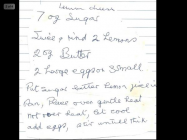 Lemon cheese
7 oz Sugar
Juice & rind 2 Lemons
2 oz Butter
2 Large eggs or 3 small
Put sugar butter lemon juice in
Pan, Place over gentle heat
not over heat, let cool
add eggs, stir until thick